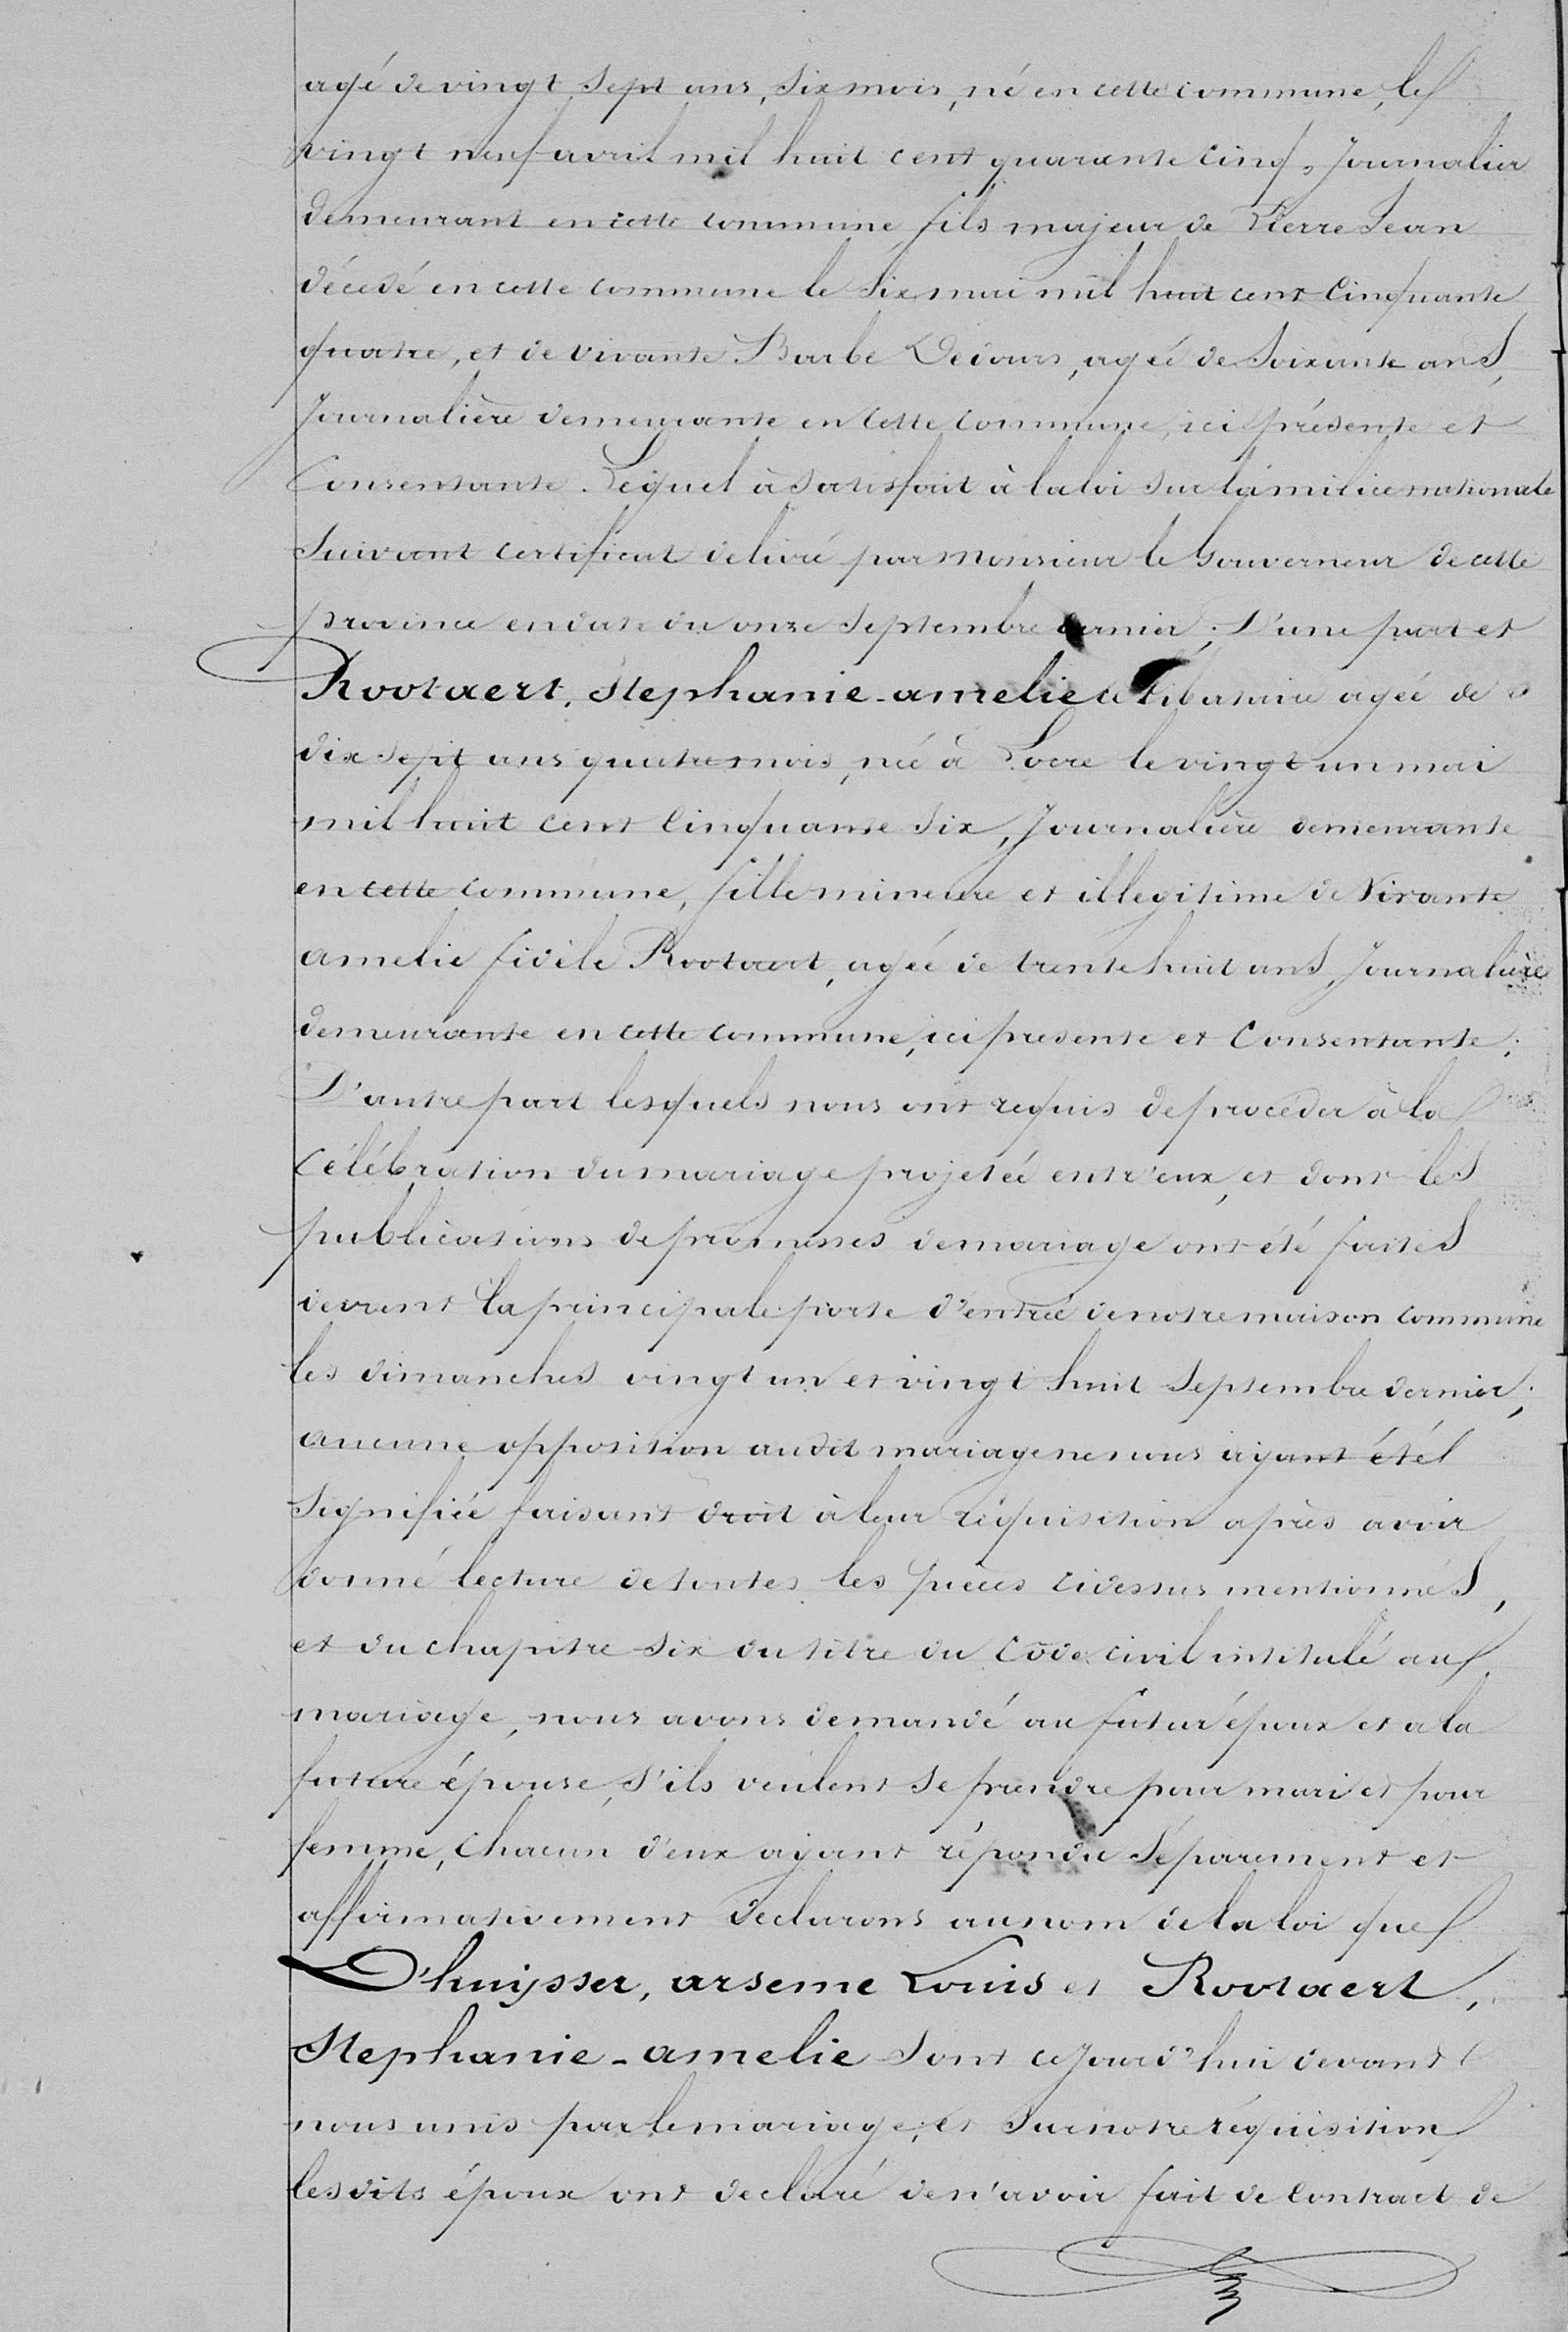 agé de vingt sept ans, six mois, né en cette commune, le
vingt neuf avril mil huit cent quarante cinq, Journalier
demeurant en cette commune fils majeur de Pierre Jean
décedé en cette commune le six mai mil huit cent Cinquante
quatre, et de vivante Barbe Decours, agée de Soixante ans,
Journalière demeurante en cette commune, ici présente et
Consentante. Lequel à satisfait à la loi sur la milice nationale
Suivant certificat delivré par Monsieur le Gouverneur de cette
province en date du onze Septembre dernier; D'une part et
Rootaert, Stephanie-amelie celibataire agée de
dix sept ans quatre mois, née à Locre le vingt un mai
mil huit cent Cinquante six, Journalière demeurante
en cette commune, fille mineure et illegitime de Vivante
amelie fidèle Rootaert, agée de trente huit ans, Journalière
demeurante en cette commune, ici presente et Consentante;
D'autre part lesquels nous ont requis de procéder à la
Célébration du mariage projetée entr'eux, et dont les
publications de promesses de mariage ont été faites
devant la principale porte d'entrée de notre maison commune
les dimanches vingt un et vingt huit Septembre dernier;
aucune opposition au dit mariage ne nous ayant été
Signifiée faisant droit à leur réquisition après avoir
donné lecture de toutes les pièces cidessus mentionnés,
et du chapitre six du titre du Code civil intitulé au
mariage, nous avons demandé au futur époux et a la
future épouse, s'ils veulent se prendre pour mari et pour
femme, Chacun d'eux ayant répondu Séparement et
affirmativement declarons au nom de la loi que
D'huysser, arseme Louis et Rootaert,
Stephanie-amelie Sont cejourd'hui devant
nous unis par le mariage; et Sur notre réquisition
les dits époux ont declaré de n'avoir fait de Contract de